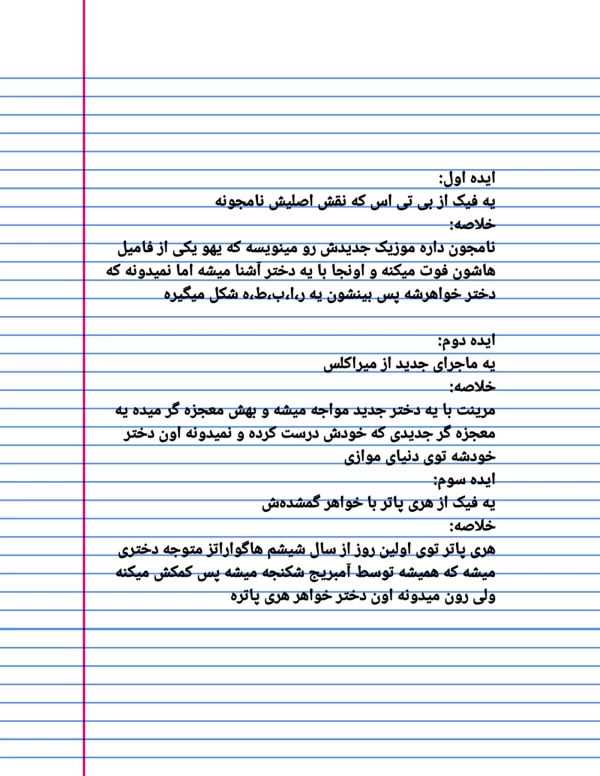 ایده اول:
یه فیک از بی تی اس که نقش اصلیش نامجونه
خلاصه:
نامجون داره موزیک جدیدش رو مینویسه که یهو یکی از فامیل
هاشون فوت میکنه و اونجا با یه دختر آشنا میشه اما نمیدونه که
دختر خواهرشه پس بینشون یه ر،ا،ب،ط،ه شکل میگیره
ایده دوم:
یه ماجرای جدید از میراکلس
خلاصه:
مرینت با یه دختر جدید مواجه میشه و بهش معجزه گر میده یه
معجزه گر جدیدی که خودش درست کرده و نمیدونه اون دختر
خودشه توی دنیای موازی
ایده سوم:
یه فیک از هری پاتر با خواهر گمشده‌ش
خلاصه:
هری پاتر توی اولین روز از سال شیشم هاگواراتز متوجه دختری
میشه که همیشه توسط آمبریج شکنجه میشه پس کمکش میکنه
ولی رون میدونه اون دختر خواهر هری پاتره